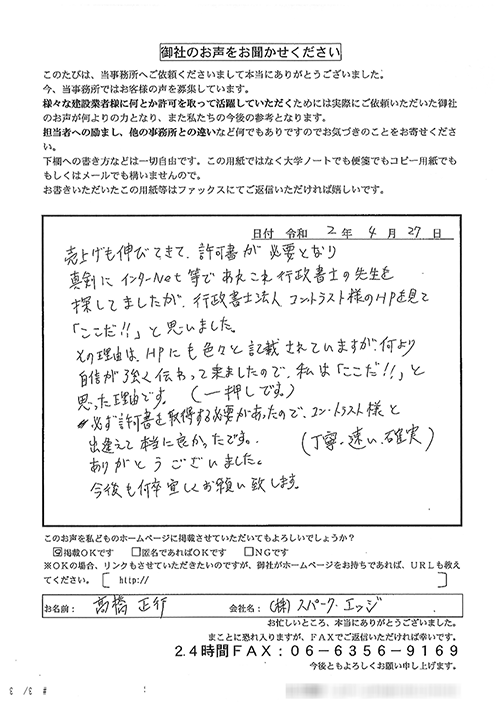 御社のお声をお聞かせください
このたびは、当事務所へご依頼くださいまして本当にありがとうございました。
今、当事務所ではお客様の声を募集しています。
様々な建設業者様に何とか許可を取って活躍していただくためには実際にご依頼いただいた御社
のお声が何よりの力となり、また私たちの今後の参考となります。
担当者への励まし、他の事務所との違いなど何でもありですのでお気づきのことをお寄せくださ
い。
下欄への書き方などは一切自由です。この用紙ではなく大学ノートでも便箋でもコピー用紙でも
もしくはメールでも構いませんので。
お書きいただいたこの用紙等はファックスにてご返信いただければ嬉しいです。
日付 令和 2 年 4 月 27 日
売上げも伸びてきて、許可書が必要となり
真剣にインターNet等であれこれ行政書士の先生を
探してましたが、行政書士法人 コントラスト様のHPを見て
「ここだ!!」と思いました。
その理由は、HPにも色々と記載されていますが、何より
自信が強く伝わって来ましたので、私は「ここだ!!」と
思った理由です。(一押しです。)
必ず許可書を取得する必要があったので、コン・トラスト様と
出逢えて本当に良かったです。(丁寧・速い・確実)
ありがとうございました。
今後も何卒宜しくお願い致します。
このお声を私どものホームページに掲載させていただいてもよろしいでしょうか?
☑掲載OKです □匿名であればOKです □NGです
※OKの場合、リンクもさせていただきたいのですが、御社がホームページをお持ちであれば、URLも教え
てください。[ http:// ]
お名前: 高橋 正行 会社名: (株)スパーク・エッジ
お忙しいところ、本当にありがとうございました。
まことに恐れ入りますが、FAXでご返信いただければ幸いです。
24時間FAX:06-6356-9169
今後ともよろしくお願い申し上げます。